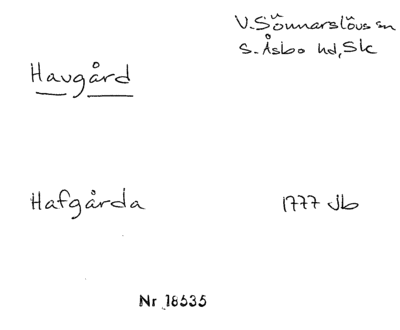 V. Sönnarslövs sn
S. Åsbo hd, Sk
Havgård
Hafgårda 1777 Jb
Nr 18535